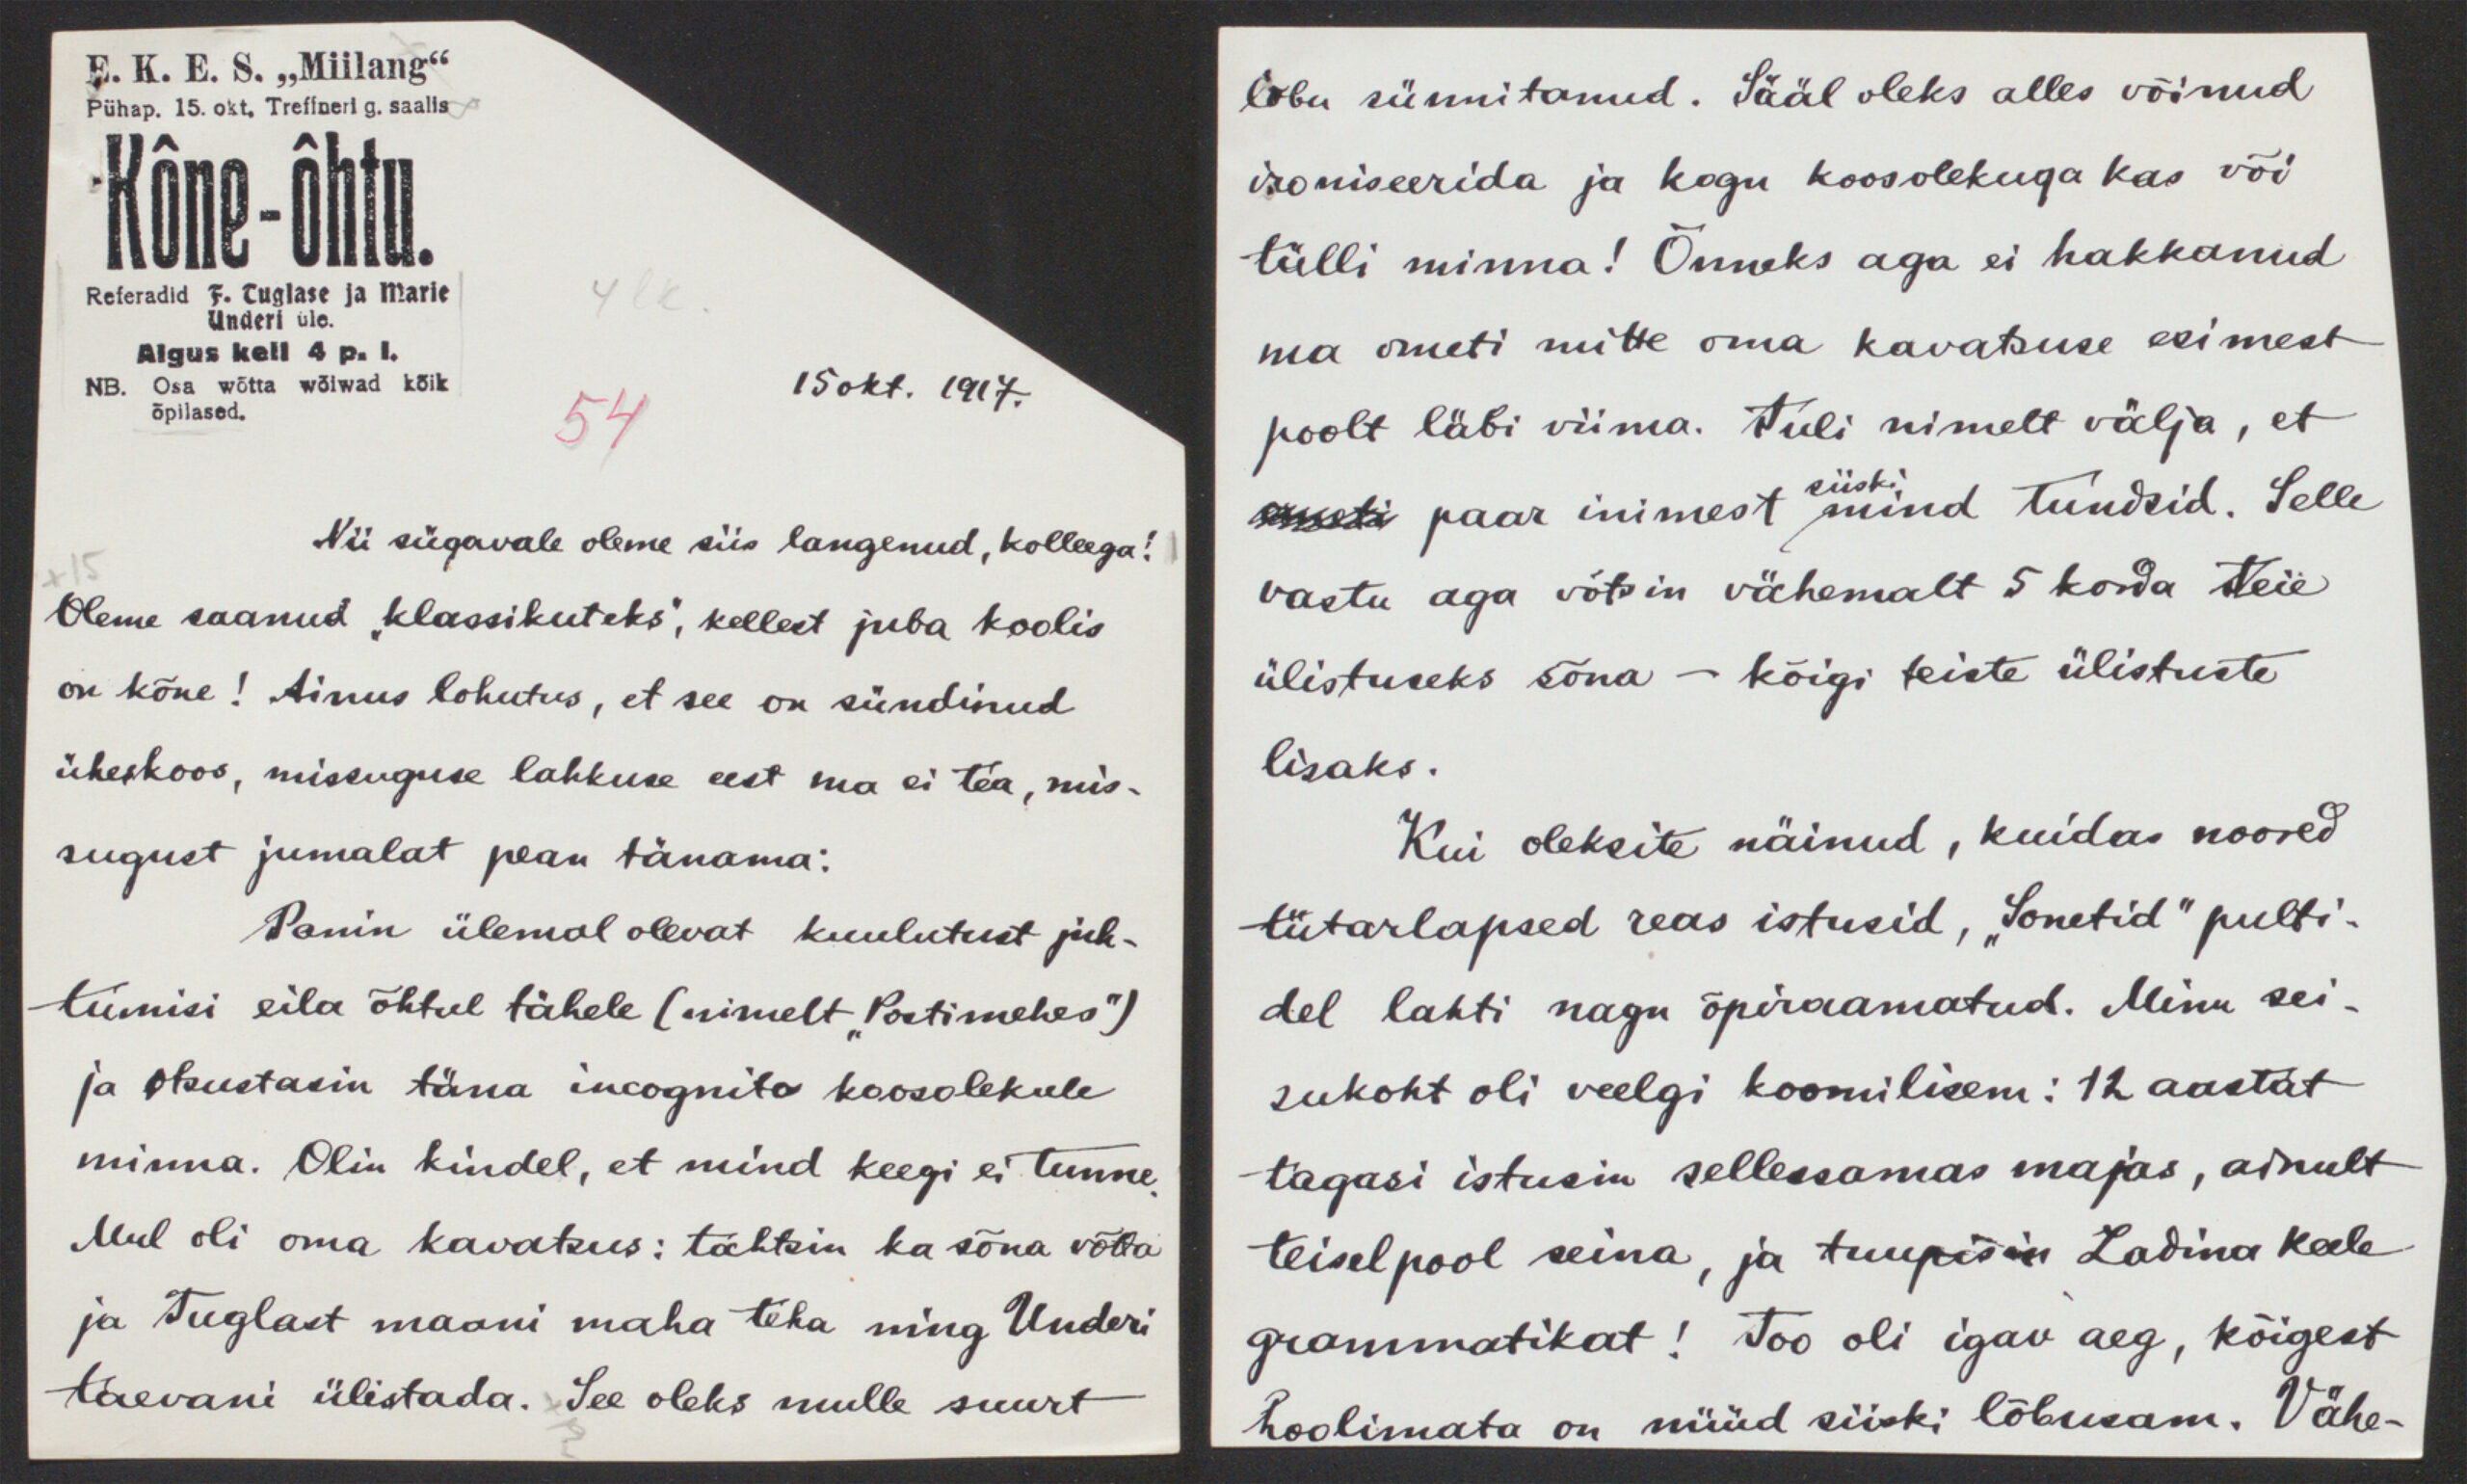 E. K. E. S. „Miilang“
Pühap. 15. okt. Treffneri g. saalis
Kône-ôhtu.
Referadid F. Tuglase ja Marie
Underi üle.
Algus kell 4 p. l.
NB. Osa wõtta wõiwad kõik
õpilased.
4 lk.
54
15 okt. 1917.
Nii sügavale oleme siis langenud, kolleega!
+15
Oleme saanud „klassikuteks", kellest juba koolis
on kõne! Ainus lohutus, et see on sündinud
üheskoos, missuguse lahkuse eest ma ei tea, mis-
sugust jumalat pean tänama:
Panin ülemal olevat kuulutust juh-
tumisi eila õhtul tähele (nimelt „Postimehes")
ja otsustasin täna incognito koosolekule
minna. Olin kindel, et mind keegi ei tunne.
Mul oli oma kavatsus: tahtsin ka sõna võtta
ja Tuglast maani maha teha ning Underi
taevani ülistada. See oleks mulle suurt
lõbu sünnitanud. Sääl oleks alles võinud
ironiseerida ja kogu koosolekuga kas või
tülli minna! Õnneks aga ei hakkanud
ma ometi mitte oma kavatsuse esimest
poolt läbi viima. Tuli nimelt välja, et
ometi paar inimest siiski mind tundsid. Selle
vastu aga võtsin vähemalt 5 korda Teie
ülistuseks sõna – kõigi teiste ülistuste
lisaks.
Kui oleksite näinud, kuidas noored
tütarlapsed reas istusid, „Sonetid" pulti-
del lahti nagu õpiraamatud. Minu sei-
sukoht oli veelgi koomilisem: 12 aastat
tagasi istusin sellessamas majas, ainult
teiselpool seina, ja tuupisin Ladina keele
grammatikat! Too oli igav aeg, kõigest
hoolimata on nüüd siiski lõbusam. Vähe-